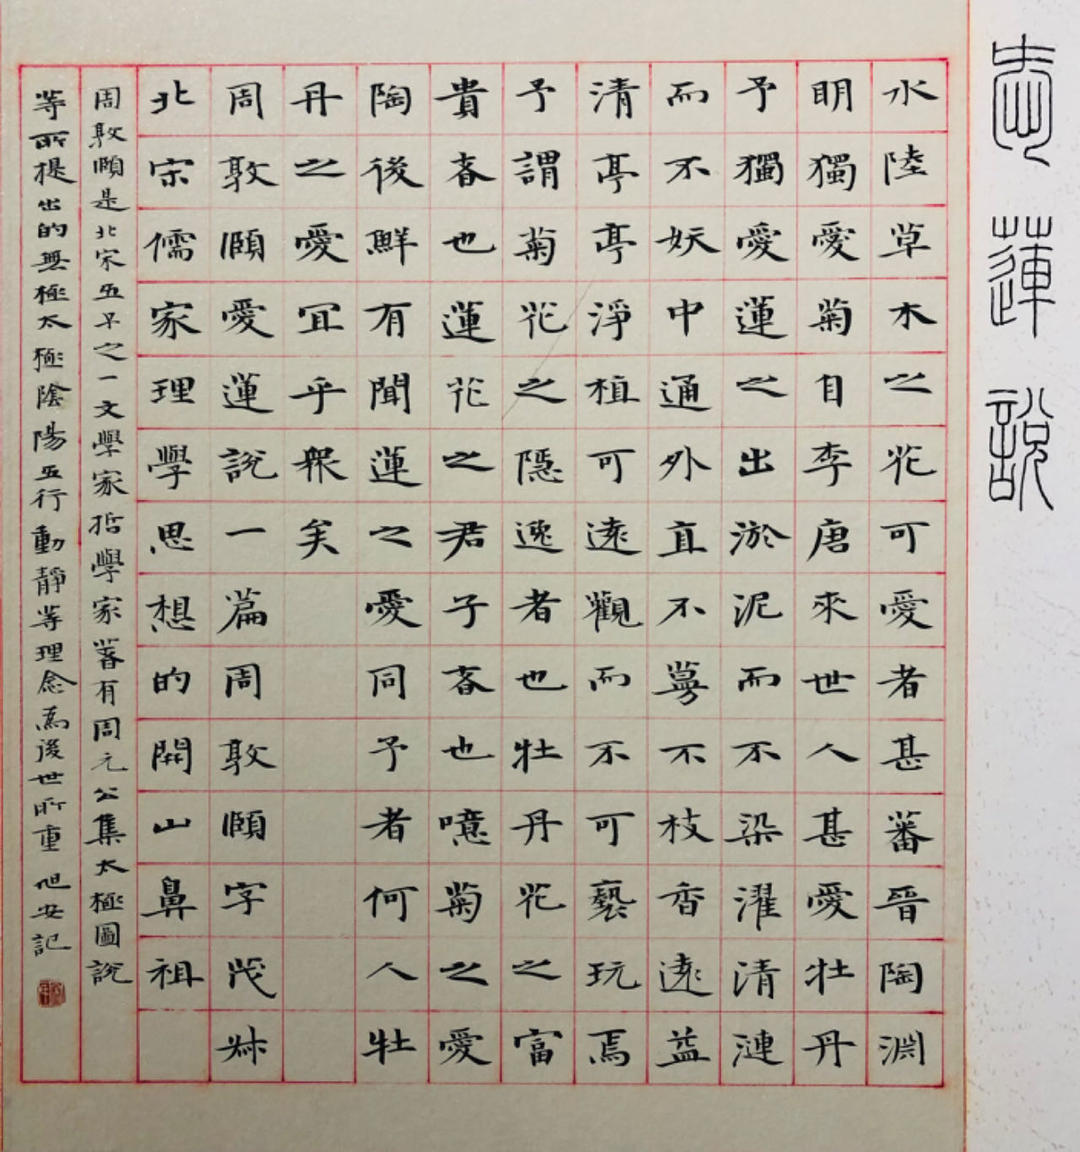 㤅蓮說
水陸草木之花可愛者甚蕃晉陶淵
明獨愛菊自李唐來世人甚愛牡丹
予獨愛蓮之出淤泥而不染濯清漣
而不妖中通外直不蔓不枝香遠益
清亭亭淨植可遠觀而不可褻玩焉
予謂菊花之隱逸者也牡丹花之富
貴者也蓮花之君子者也噫菊之愛
陶後鮮有聞蓮之愛同予者何人牡
丹之愛宜乎眾矣
周敦頤愛蓮說一篇周敦頤字茂叔
北宋儒家理學思想的開山鼻祖
周敦頤是北宋五子之一文學家哲學家著有周元公集太極圖說
等所提出的無極太極陰陽五行動靜等理念為後世所重旭安記